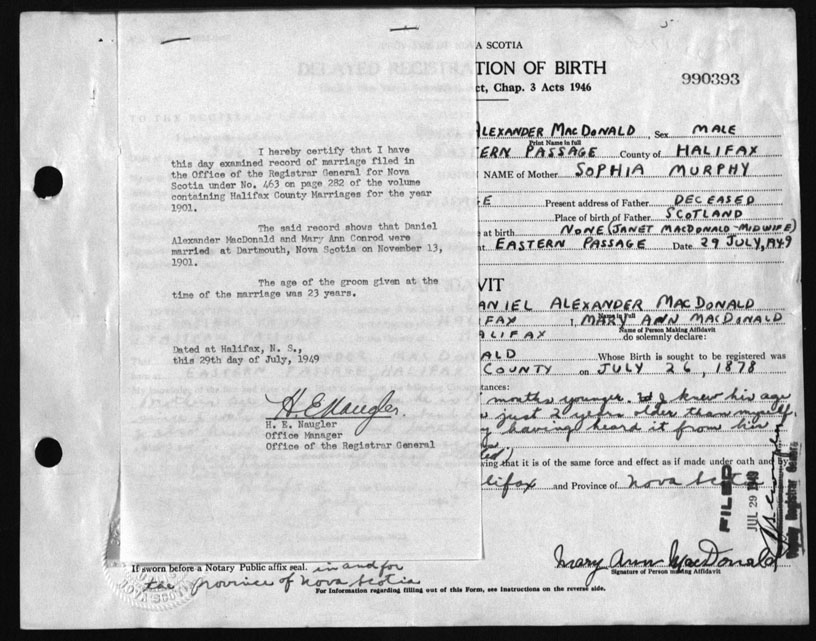 A SCOTIA
TION OF BIRTH
ct, Chap. 3 Acts 1946
990393
I hereby certify that I have
this day examined record of marriage filed in
the Office of the Registrar General for Nova
Scotia under No. 463 on page 282 of the volume
containing Halifax County Marriages for the year
1901.
The said record shows that Daniel
Alexander MacDonald and Mary Ann Conrod were
married at Dartmouth, Nova Scotia on November 13,
1901.
The age of the groom given at the
time of the marriage was 23 years.
Dated at Halifax, N. S.,
this 29th day of July, 1949
H. E. Naugler
H. E. Naugler
Office Manager
Office of the Registrar General
ALEXANDER MACDONALD, Sex MALE
Print Name in full
ERN PASSAGE County of HALIFAX
NAME of Mother SOPHIA MURPHY
GE Present address of Father DECEASED
Place of birth of Father SCOTLAND
e at birth NONE (JANET MACDONALD-MIDWIFE)
at EASTERN PASSAGE Date 29 JULY, 1949
VIT
ANIEL ALEXANDER MACDONALD
Name in Full
FAX I, MARY ANN MACDONALD
Name of Person Making Affidavit
ALIFAX do solemnly declare:
ALD Whose Birth is sought to be registered was
COUNTY on JULY 26, 1878
tances:
months younger. I knew his age
just 2 years older than myself
having heard it from his
ving that it is of the same force and effect as if made under oath and by
lifax and Province of Nova Scotia
FILED
JUL 29 1949
Deputy Registrar General
Mary Ann MacDonald
Signature of Person making Affidavit
If sworn before a Notary Public affix seal. in and for
the Province of Nova Scotia
For Information regarding filling out of this Form, see Instructions on the reverse side.